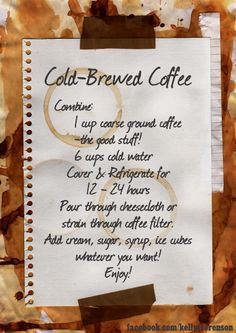 Cold-Brewed Coffee
Combine:
1 cup coarse ground coffee
-the good stuff!
6 cups cold water
Cover & Refrigerate for
12 - 24 hours
Pour through cheesecloth or
strain through coffee filter.
Add cream, sugar, syrup, ice cubes
whatever you want!
Enjoy!